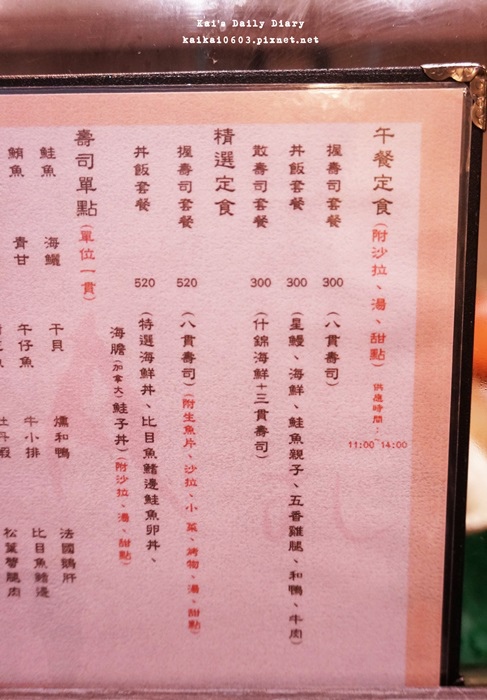 Kai's Daily Diary
kaikai0603.pixnet.net
午餐定食(附沙拉、湯、甜點) 供應時間：11:00~14:00
握壽司套餐 300 (八貫壽司)
丼飯套餐 300 (星鰻、海鮮、鮭魚親子、五香雞腿、和鴨、牛肉)
散壽司套餐 300 (什錦海鮮+三貫壽司)
精選定食
握壽司套餐 520 (八貫壽司)(附生魚片、沙拉、小菜、烤物、湯、甜點)
丼飯套餐 520 (特選海鮮丼、比目魚鰭邊鮭魚卵丼、
海膽(加拿大)鮭子丼)(附沙拉、湯、甜點)
壽司單點(單位一貫)
鮭魚 海鱺 干貝 燻和鴨 法國鵝肝
鮪魚 青甘 午仔魚 牛小排 比目魚鰭邊
牡丹蝦 松葉蟹腿肉